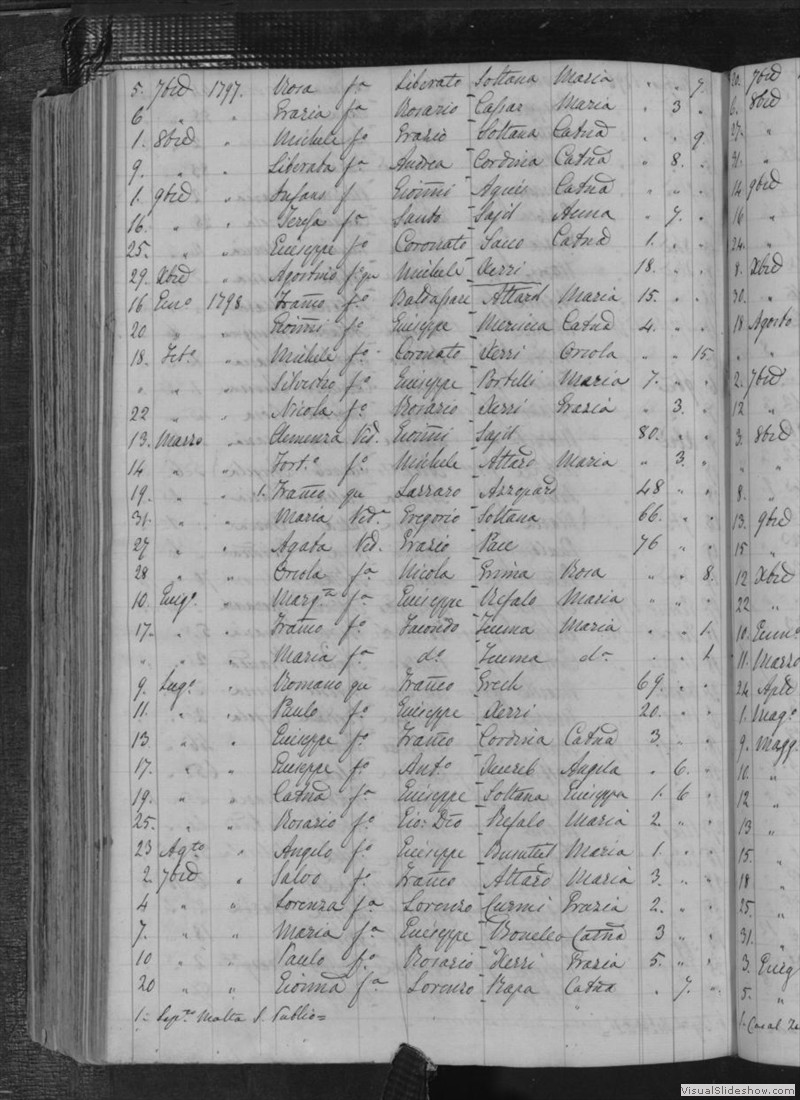 5. 7bre 1797. Rosa fa Liberato Soltana Maria . . 7.
6 " " Grazia fa Rosario Caſsar Maria . 3 .
1. 8bre " Michele fo Grazio Soltana Catna . . 9.
9. " " Liberata fa Andrea Cordina Catna " 8. .
1. 9bre " Infans f Gioñni Agius Catna " " .
16. " " Teresa fa Santo Sajd Anna . 7. .
25. " " Giuseppe fo Coronato Catna 1. . .
29. Xbre " Agostino fo qu Michele Xerri 18. . .
16 Geno 1798 Franco fo Baldassare Attard Maria 15. . .
20 " " Gioñni fo Giuseppe Catna 4. . .
18. Febo " Michele fo Coronato Xerri Orsola " " 15
" " " Silvestro fo Giuseppe Portelli Maria 7. " .
22 " " Nicola fo Rosario Xerri Grazia . 3. .
13. Marzo " Clemenza Ved. Gioñni Sajd 80. . .
14 " " Forto fo Michele Attard Maria " 3. .
19. " " 1. Franco qu Lazzaro Azzopard 48 " .
31. " " Maria Veda Gregorio Soltana 66. . .
27 " " Agata Ved. Grazio Pace 76 " .
28 " " Orsola fa Nicola Grima Rosa " . 8.
10. Giugo " Margta fa Giuseppe Refalo Maria " " .
17. " . Franco fo Facondo Zerafa Maria . . 1.
" " " Maria fa do Zerafa da . . 1
9. Lugo " Romano qu Franco Grech 69. . .
11. " " Paulo fo Giuseppe Xerri 20. . .
13 " " Giuseppe fo Franco Cordina Catna 3. . .
17. " " Giuseppe fo Anto Xuereb Angela . 6. .
19. " " Catna fa Giuseppe Soltana Giuseppa 1. 6 .
25. " " Rosario fo Gio: Dto Refalo Maria 2. " .
23 Agto " Angelo fo Giuseppe Busuttil Maria 1. . .
2. 7bre " Salvo fo Franco Attard Maria 3. " .
4 " " Lorenza fa Lorenzo Curmi Grazia 2. " .
7. " " Maria fa Giuseppe Bonello Catna 3 " .
10 " " Paulo fo Rosario Xerri Grazia 5. " .
20 " " Gionna fa Lorenzo Rapa Catna . 7. "
1= Sepo Malta S. Publio=
20. 7bre
6. 8bre
27. "
31. "
14 9bre
16 "
24. "
8. Xbre
30. "
18 Agosto
" "
2. 7bre
12 "
3. 8bre
" "
8. "
13. 9bre
15 "
12 Xbre
22 "
10. Genno
11. Marzo
24 Aple
1. Mago
9. Magg.
10. "
12 "
13 "
15. "
18 "
25. "
31. "
3. Giug
5. "
1. Casal
VisualSlideshow.com